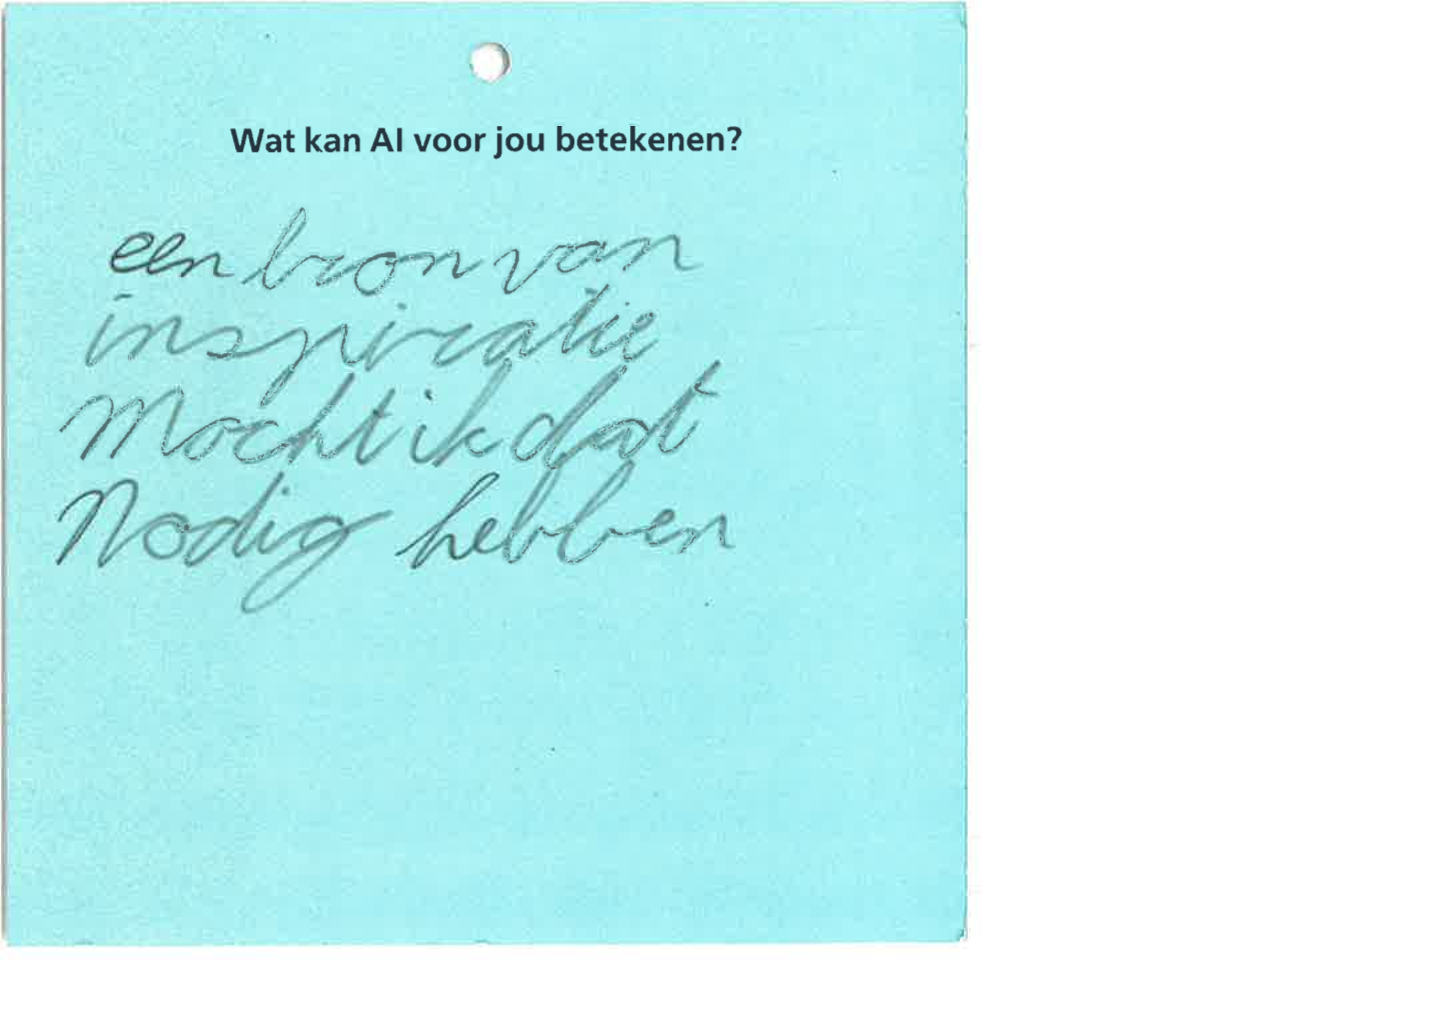 Wat kan AI voor jou betekenen?
een bron van
inspiratie
Mocht ik dat
Nodig hebben